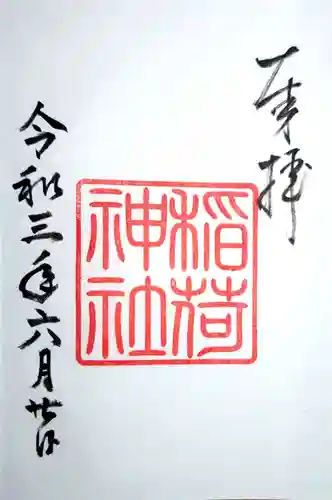 奉拝
稲荷
神社
令和三年六月廿日